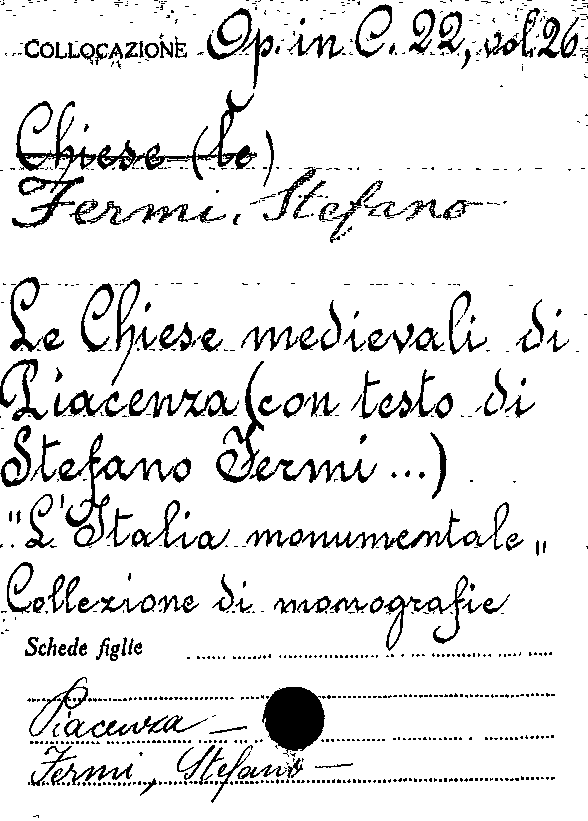 COLLOCAZIONE Op. in C. 22, vol. 26
Chiese (le)
Fermi, Stefano
Le Chiese medievali di
Piacenza (con testo di
Stefano Fermi ...)
"L'Italia monumentale„
Collezione di monografie
Schede figlie
Piacenza —
Fermi, Stefano —